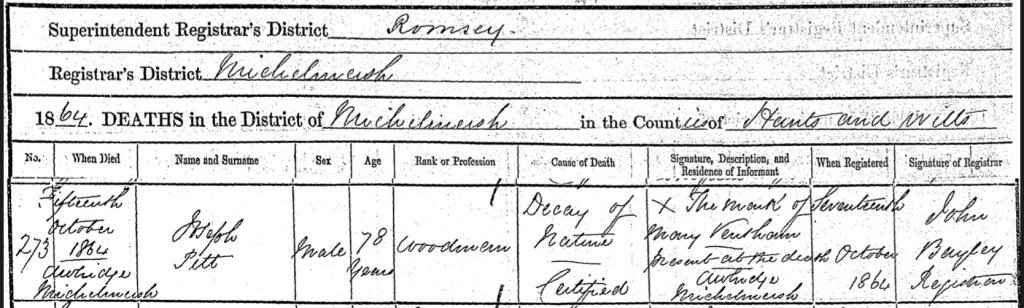 Superintendent Registrar's District Romsey.
Registrar's District Michelmersh
1864. DEATHS in the District of Michelmersh in the Counties of Hants and Wilts
No. When Died Name and Surname Sex Age Rank or Profession Cause of Death Signature, Description, and Residence of Informant When Registered Signature of Registrar
273
Fifteenth
October
1864
Awbridge
Michelmersh
Joseph
Pitt
Male
78
Years
Woodman
Decay of
Nature
Certified
X The mark of
Mary Ventham
present at the death
Awbridge
Michelmersh
Seventeenth
October
1864
John
Bayley
Registrar